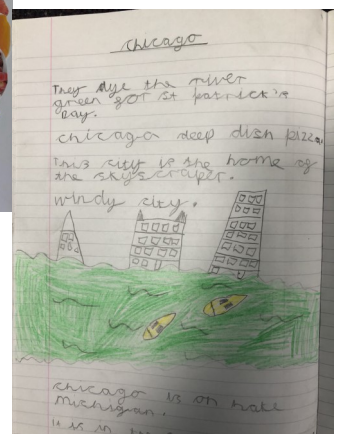 chicago
They dye the river
green for St patrick's
Day.
chicago deep dish pizza.
This city is the home of
the skyscraper.
windy city.
chicago is on
michigan.
it is in